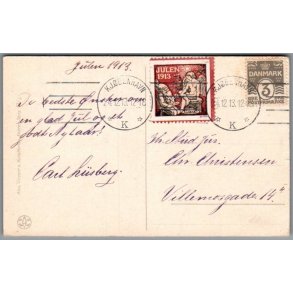 Julen 1913.
KJØBENHAVN
24.12.13. 12-
K
JULEN
1913
KJØBENHAVN
.12.13. 12-
K
DANMARK
3
De bedste Ønsker om
en glad Jul og et
godt Nytaar!
Carl
Chr. Christensen
Villemosgade 14